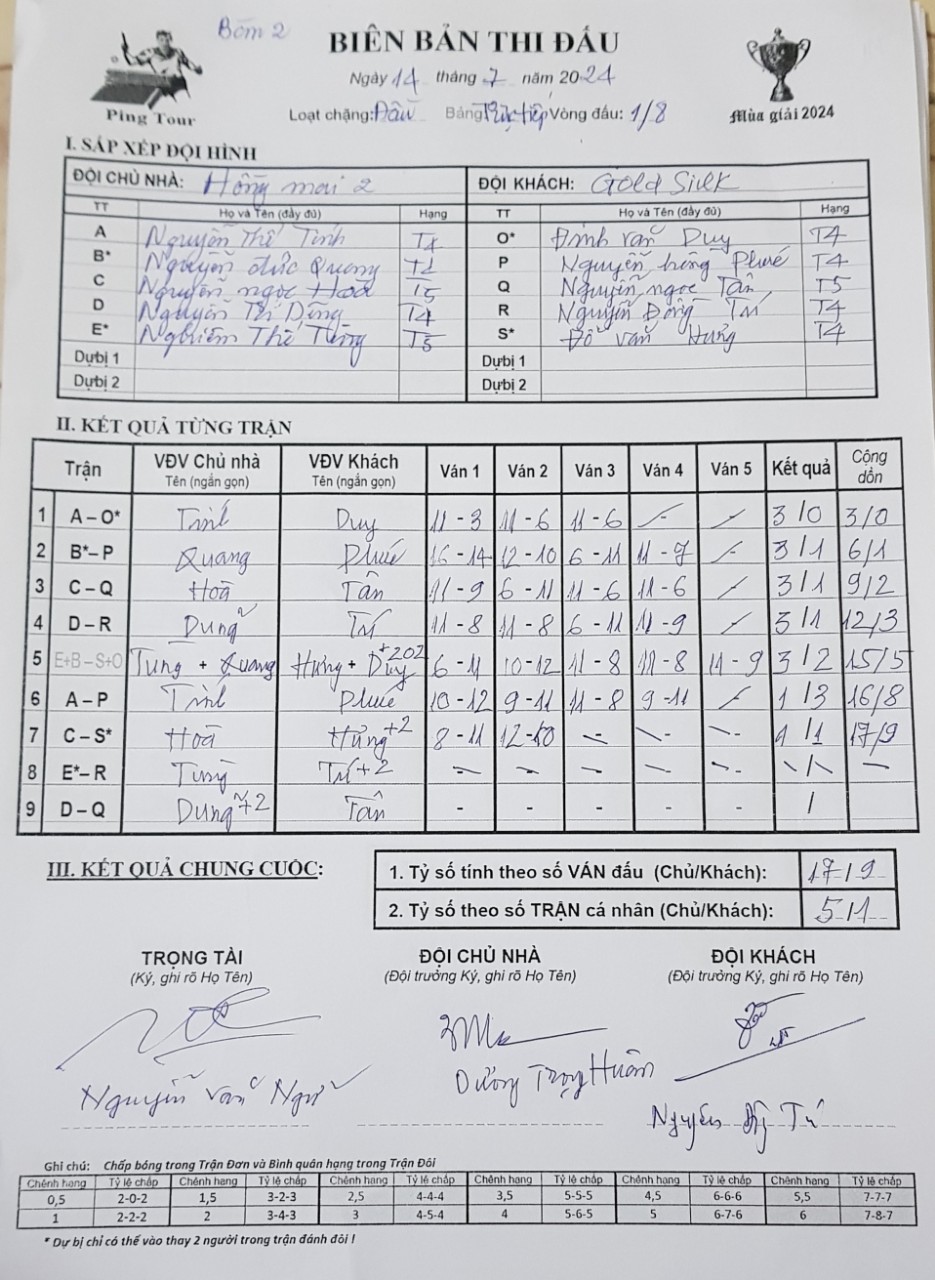 Bàn 2
BIÊN BẢN THI ĐẤU
Ngày 14 tháng 7 năm 2024
Ping Tour
Loạt chặng: Đấu Bảng Trực tiếp Vòng đấu: 1/8
Mùa giải 2024
I. SẮP XẾP ĐỘI HÌNH
ĐỘI CHỦ NHÀ: Hồng mai 2 ĐỘI KHÁCH: Gold Silk
TT Họ và Tên (đầy đủ) Hạng TT Họ và Tên (đầy đủ) Hạng
A Nguyễn Thế Tính T4 O* Đinh văn Duy T4
B* Nguyễn đức Quang P Nguyễn hồng Phúc T4
C Nguyễn ngọc Hoà T5 Q Nguyễn ngọc Tân T5
D Nguyễn Dũng T4 R Nguyễn Trí T4
E* Nghiêm Thế Tùng T5 S* Đỗ văn Hưng T4
Dự bị 1 Dự bị 1
Dự bị 2 Dự bị 2
II. KẾT QUẢ TỪNG TRẬN
Trận VĐV Chủ nhà Tên (ngắn gọn) VĐV Khách Tên (ngắn gọn) Ván 1 Ván 2 Ván 3 Ván 4 Ván 5 Kết quả Cộng dồn
1 A – O* Tính Duy 11 - 3 11 - 6 11 - 6 - - 3 / 0 3/0
2 B*– P Quang Phúc 16 - 14 12 - 10 6 - 11 11 - 7 - 3 / 1 6/1
3 C – Q Hoà Tân 11 - 9 6 - 11 11 - 6 11 - 6 - 3 / 1 9/2
4 D – R Dũng Trí 11 - 8 11 - 8 6 - 11 11 - 9 - 3 / 1 12/3
5 E+B – S+O Tùng + Quang Hưng + Duy +202 6 - 11 10 - 12 11 - 8 11 - 8 11 - 9 3 / 2 15/5
6 A – P Tính Phúc 10 - 12 9 - 11 11 - 8 9 - 11 - 1 / 3 16/8
7 C – S* Hoà Hưng +2 8 - 11 12 - 10 - - - 1 / 1 17/9
8 E*– R Tùng Trí +2 - - - - - / -
9 D – Q Dũng +2 Tân - - - - - /
III. KẾT QUẢ CHUNG CUỘC:
1. Tỷ số tính theo số VÁN đấu (Chủ/Khách): 17 / 9
2. Tỷ số theo số TRẬN cá nhân (Chủ/Khách): 5 / 1
TRỌNG TÀI ĐỘI CHỦ NHÀ ĐỘI KHÁCH
(Ký, ghi rõ Họ Tên) (Đội trưởng Ký, ghi rõ Họ Tên) (Đội trưởng Ký, ghi rõ Họ Tên)
Nguyễn Văn Dương Trọng Huân Nguyễn
Ghi chú: Chấp bóng trong Trận Đơn và Bình quân hạng trong Trận Đôi
Chênh hạng Tỷ lệ chấp Chênh hạng Tỷ lệ chấp Chênh hạng Tỷ lệ chấp Chênh hạng Tỷ lệ chấp Chênh hạng Tỷ lệ chấp Chênh hạng Tỷ lệ chấp
0,5 2-0-2 1,5 3-2-3 2,5 4-4-4 3,5 5-5-5 4,5 6-6-6 5,5 7-7-7
1 2-2-2 2 3-4-3 3 4-5-4 4 5-6-5 5 6-7-6 6 7-8-7
* Dự bị chỉ có thể vào thay 2 người trong trận đánh đôi !